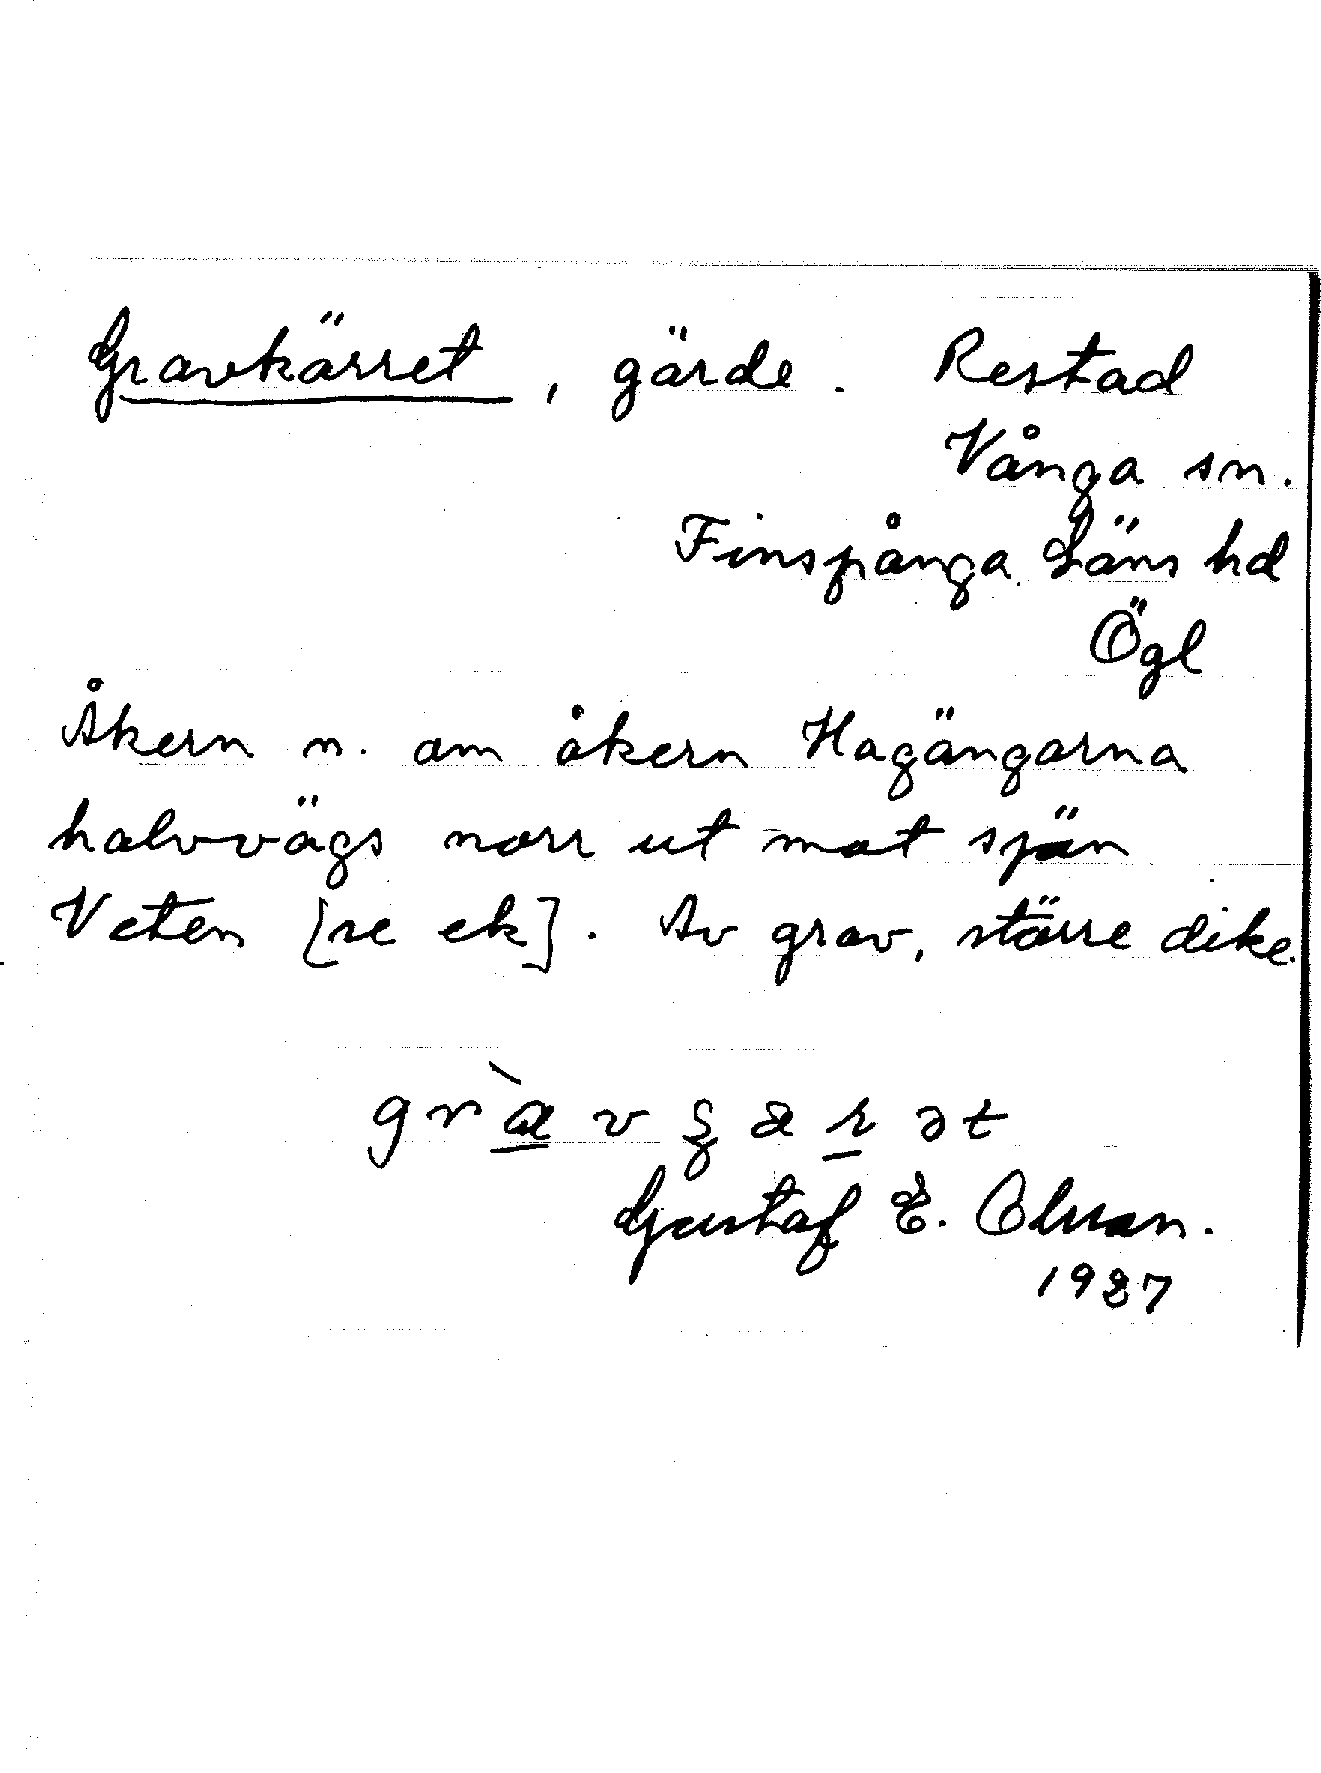 Gravkärret, gärde. Restad
Vånga sn.
Finspånga Läns hd
Ögl
Åkern n. om åkern Hagängarna
halvvägs norr ut mot sjön
Veten [se ek]. Av grav, större dike.
Gustaf E. Olsson.
1927